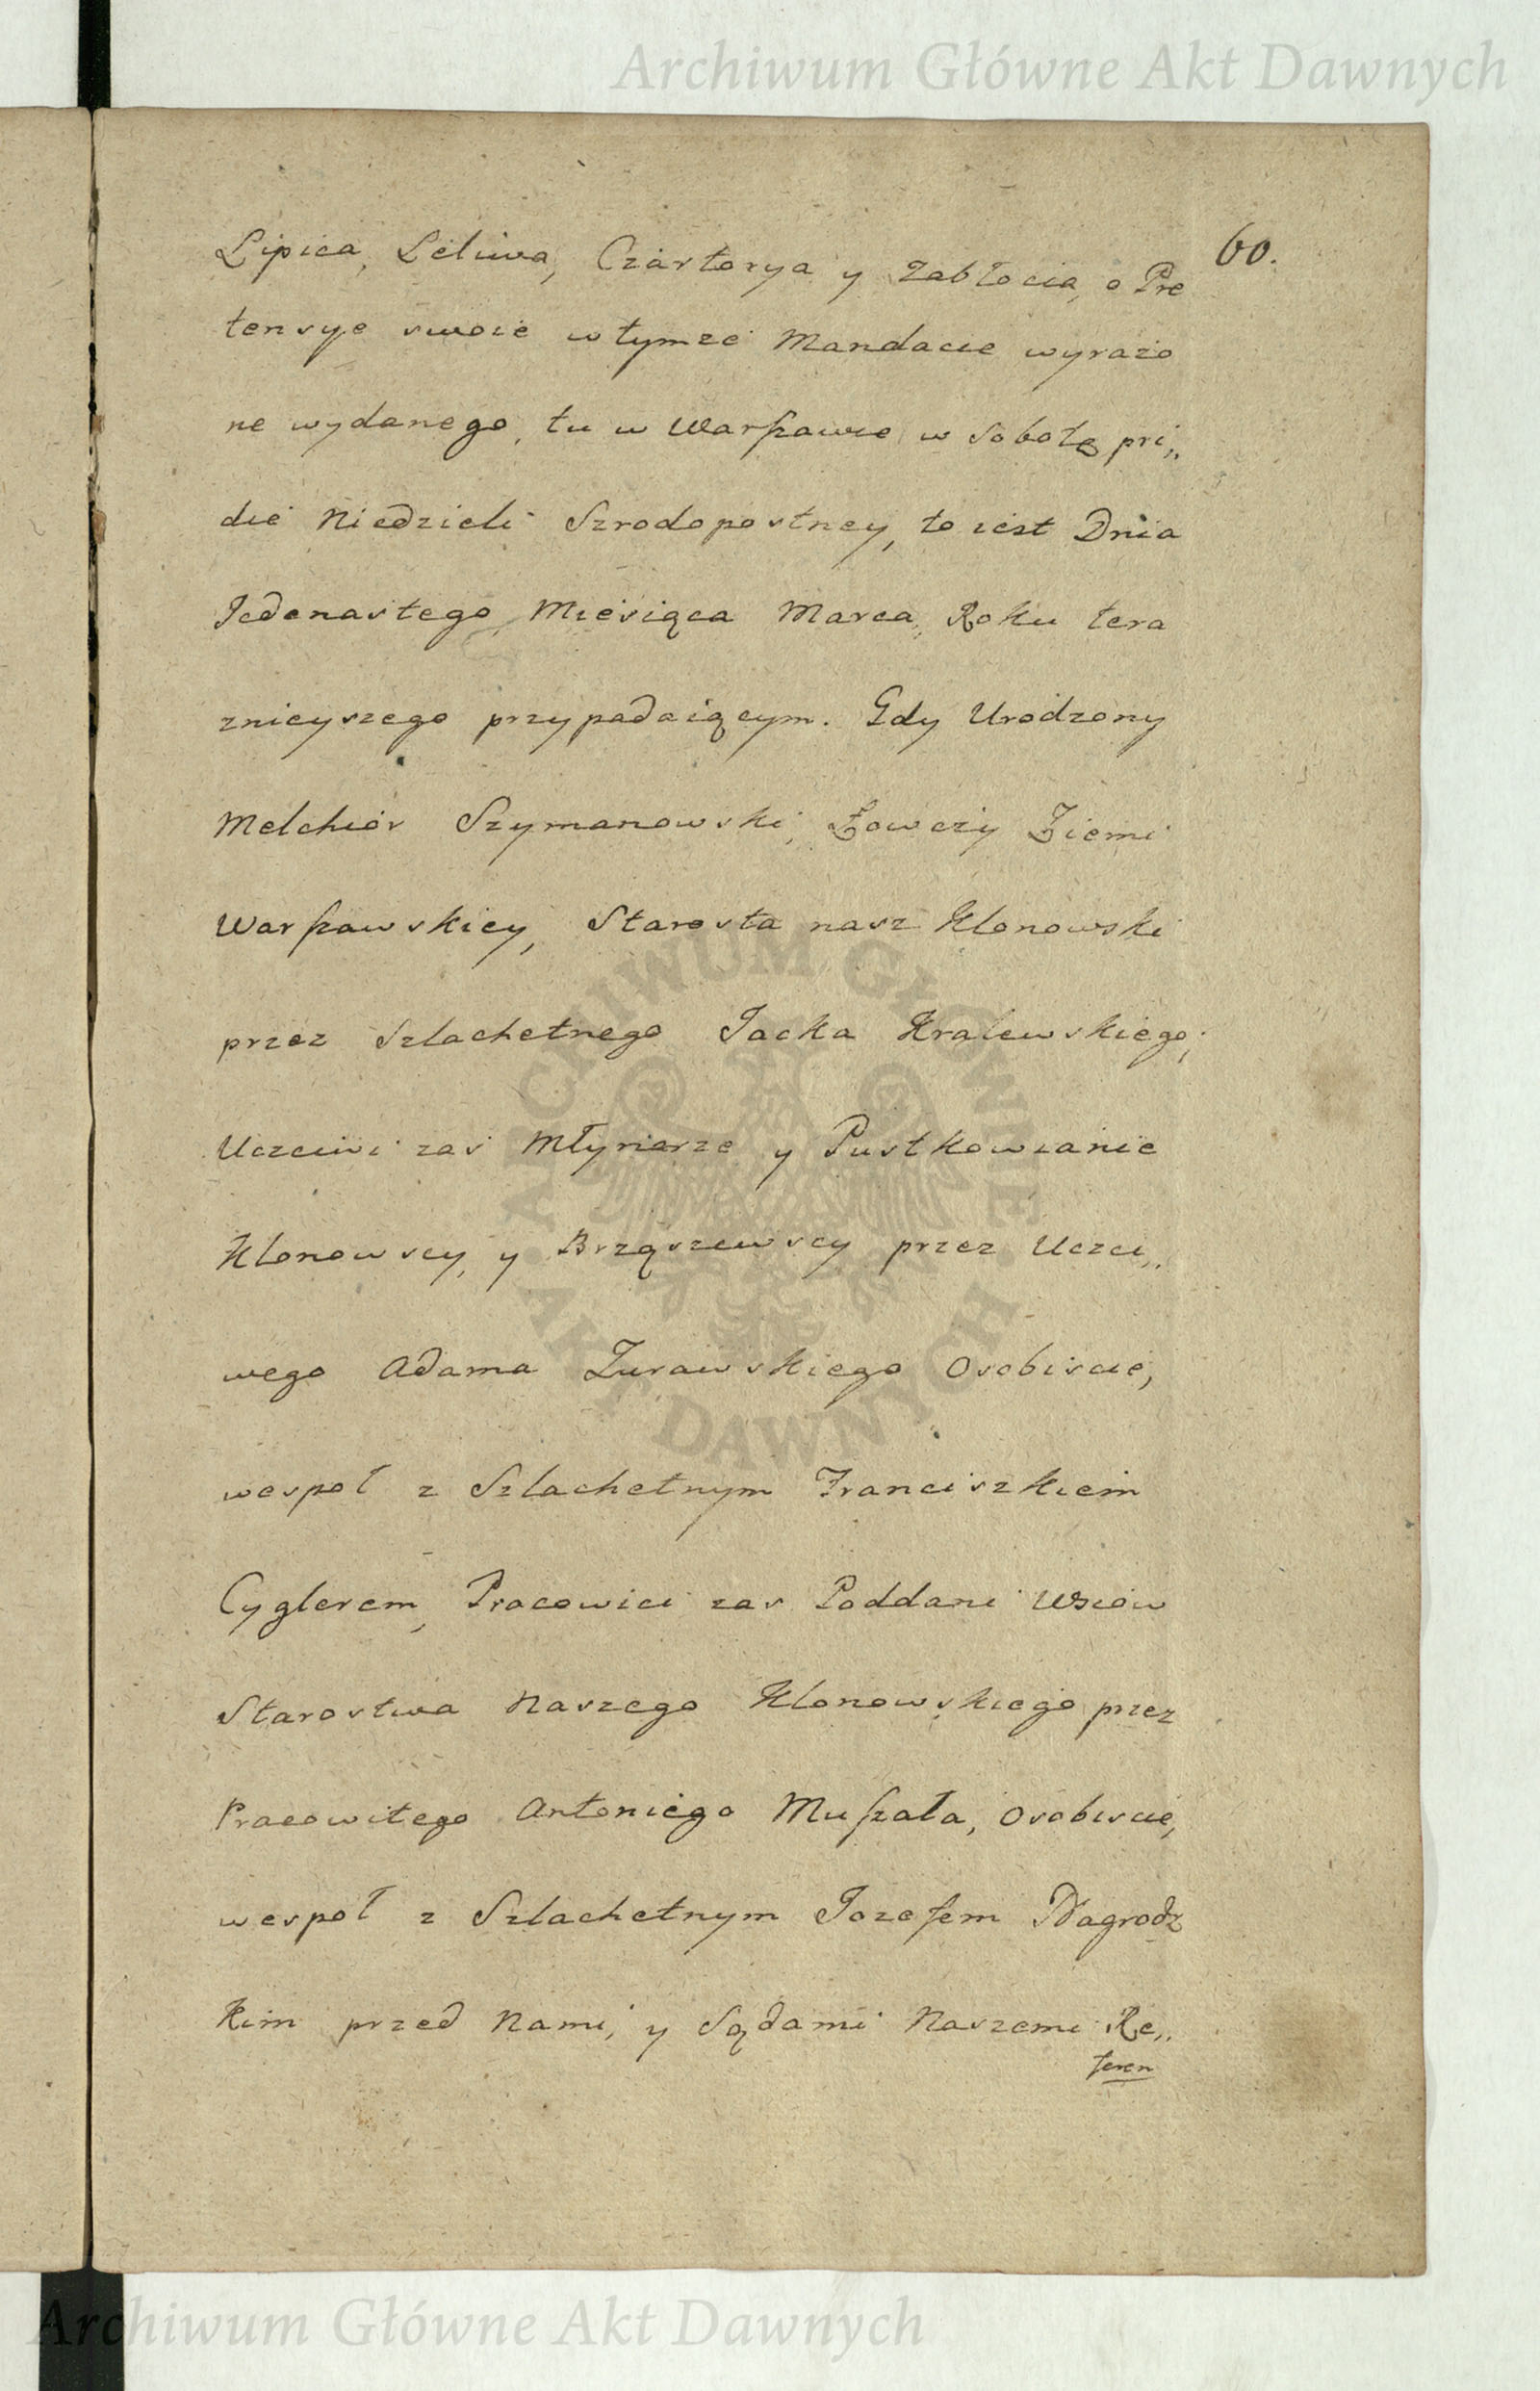 Archiwum Główne Akt Dawnych
60.
Lipica, Leliwa, Czartorya y Zabłocia, o Pre
tensye swoie w tymże Mandacie wyrażo
ne wydanego, tu w Warszawie w Sobotę pri„
die Niedzieli Szrodopostney, to iest Dnia
Jedenastego Miesiąca Marca, Roku tera
znieyszego przypadaiącym. Gdy Urodzony
Melchior Szymanowski, Łowczy Ziemi
Warszawskiey, Starosta nasz Klonowski
przez Szlachetnego Jacka Kralewskiego,
Uczciwi zas Młynarze y Pustkowianie
Klonowscy, y Brząszewscy przez Uczci„
wego Adama Zurawskiego Osobiscie,
wespoł z Szlachetnym Franciszkiem
Cyglerem, Pracowici zas Poddani Wsiow
Starostwa Naszego Klonowskiego przez
Pracowitego Antoniego Muszała, Osobiscie,
wespoł z Szlachetnym Jozefem Nagrodz
kim przed Nami, y Sądami Naszemi Re„
feren
ARCHIWUM GŁÓWNE AKT DAWNYCH
Archiwum Główne Akt Dawnych